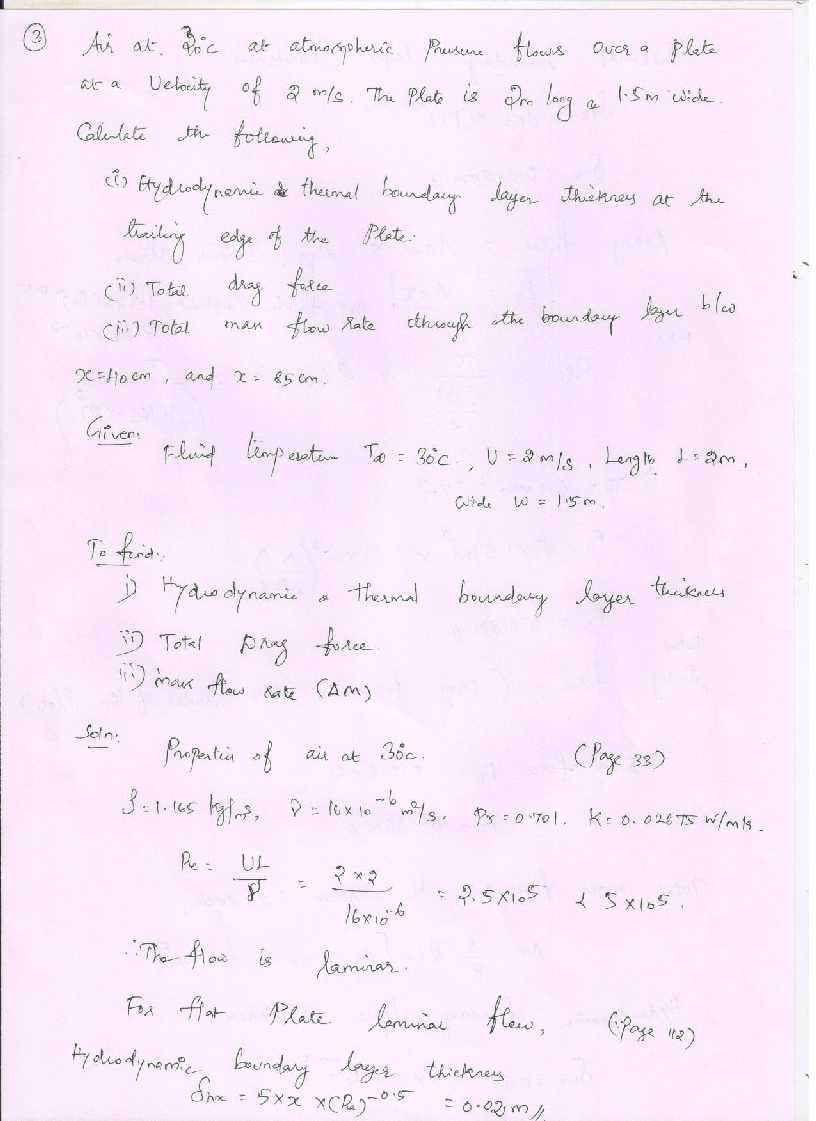 ③ Air at 30°C at atmospheric Pressure flows over a plate
at a Velocity of 2 m/s. The Plate is 2m long & 1.5m wide.
Calculate the following,
(i) Hydrodynamic & thermal boundary layer thickness at the
trailing edge of the Plate.
(ii) Total drag force
(iii) Total mass flow rate through the boundary layer b/w
x=40cm, and x = 85cm.
Given:
Fluid temperature T∞ = 30°C., U = 2m/s, Length L = 2m,
wide W = 1.5m.
To find:
i) Hydrodynamic & thermal boundary layer thickness
ii) Total Drag force
iii) mass flow rate (ΔM)
Soln:
Properties of air at 30°C. (Page 33)
ρ = 1.165 kg/m³, ν = 16×10⁻⁶ m²/s. Pr = 0.701. K = 0.02675 W/mk.
Re = UL/ν = 2×2/16×10⁻⁶ = 2.5×10⁵ < 5×10⁵.
∴ The flow is laminar.
For flat Plate laminar flow, (Page 112)
Hydrodynamic boundary layer thickness
δhx = 5×x×(Re)⁻⁰·⁵ = 0.02m //